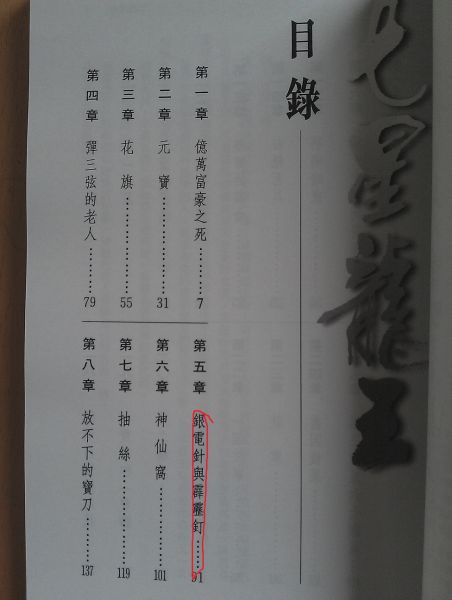 七星龍王
目錄
第一章 億萬富豪之死………7
第二章 元寶………31
第三章 花旗………55
第四章 彈三弦的老人………79
第五章 銀電針與霹靂釘……91
第六章 神仙窩………101
第七章 抽絲………119
第八章 放不下的寶刀………137